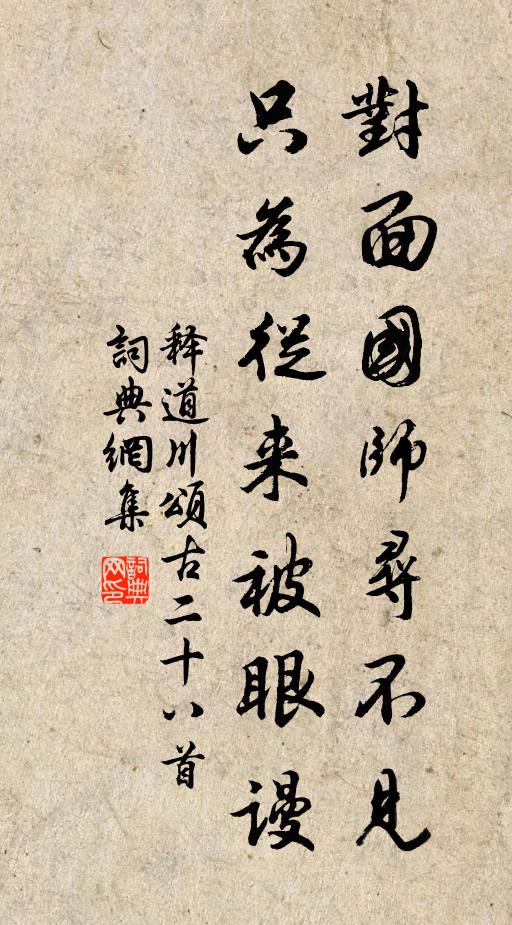 對面國師尋不見
只為從来被眼謾
释道川頌古二十八首
詞典網集
詞典
网印